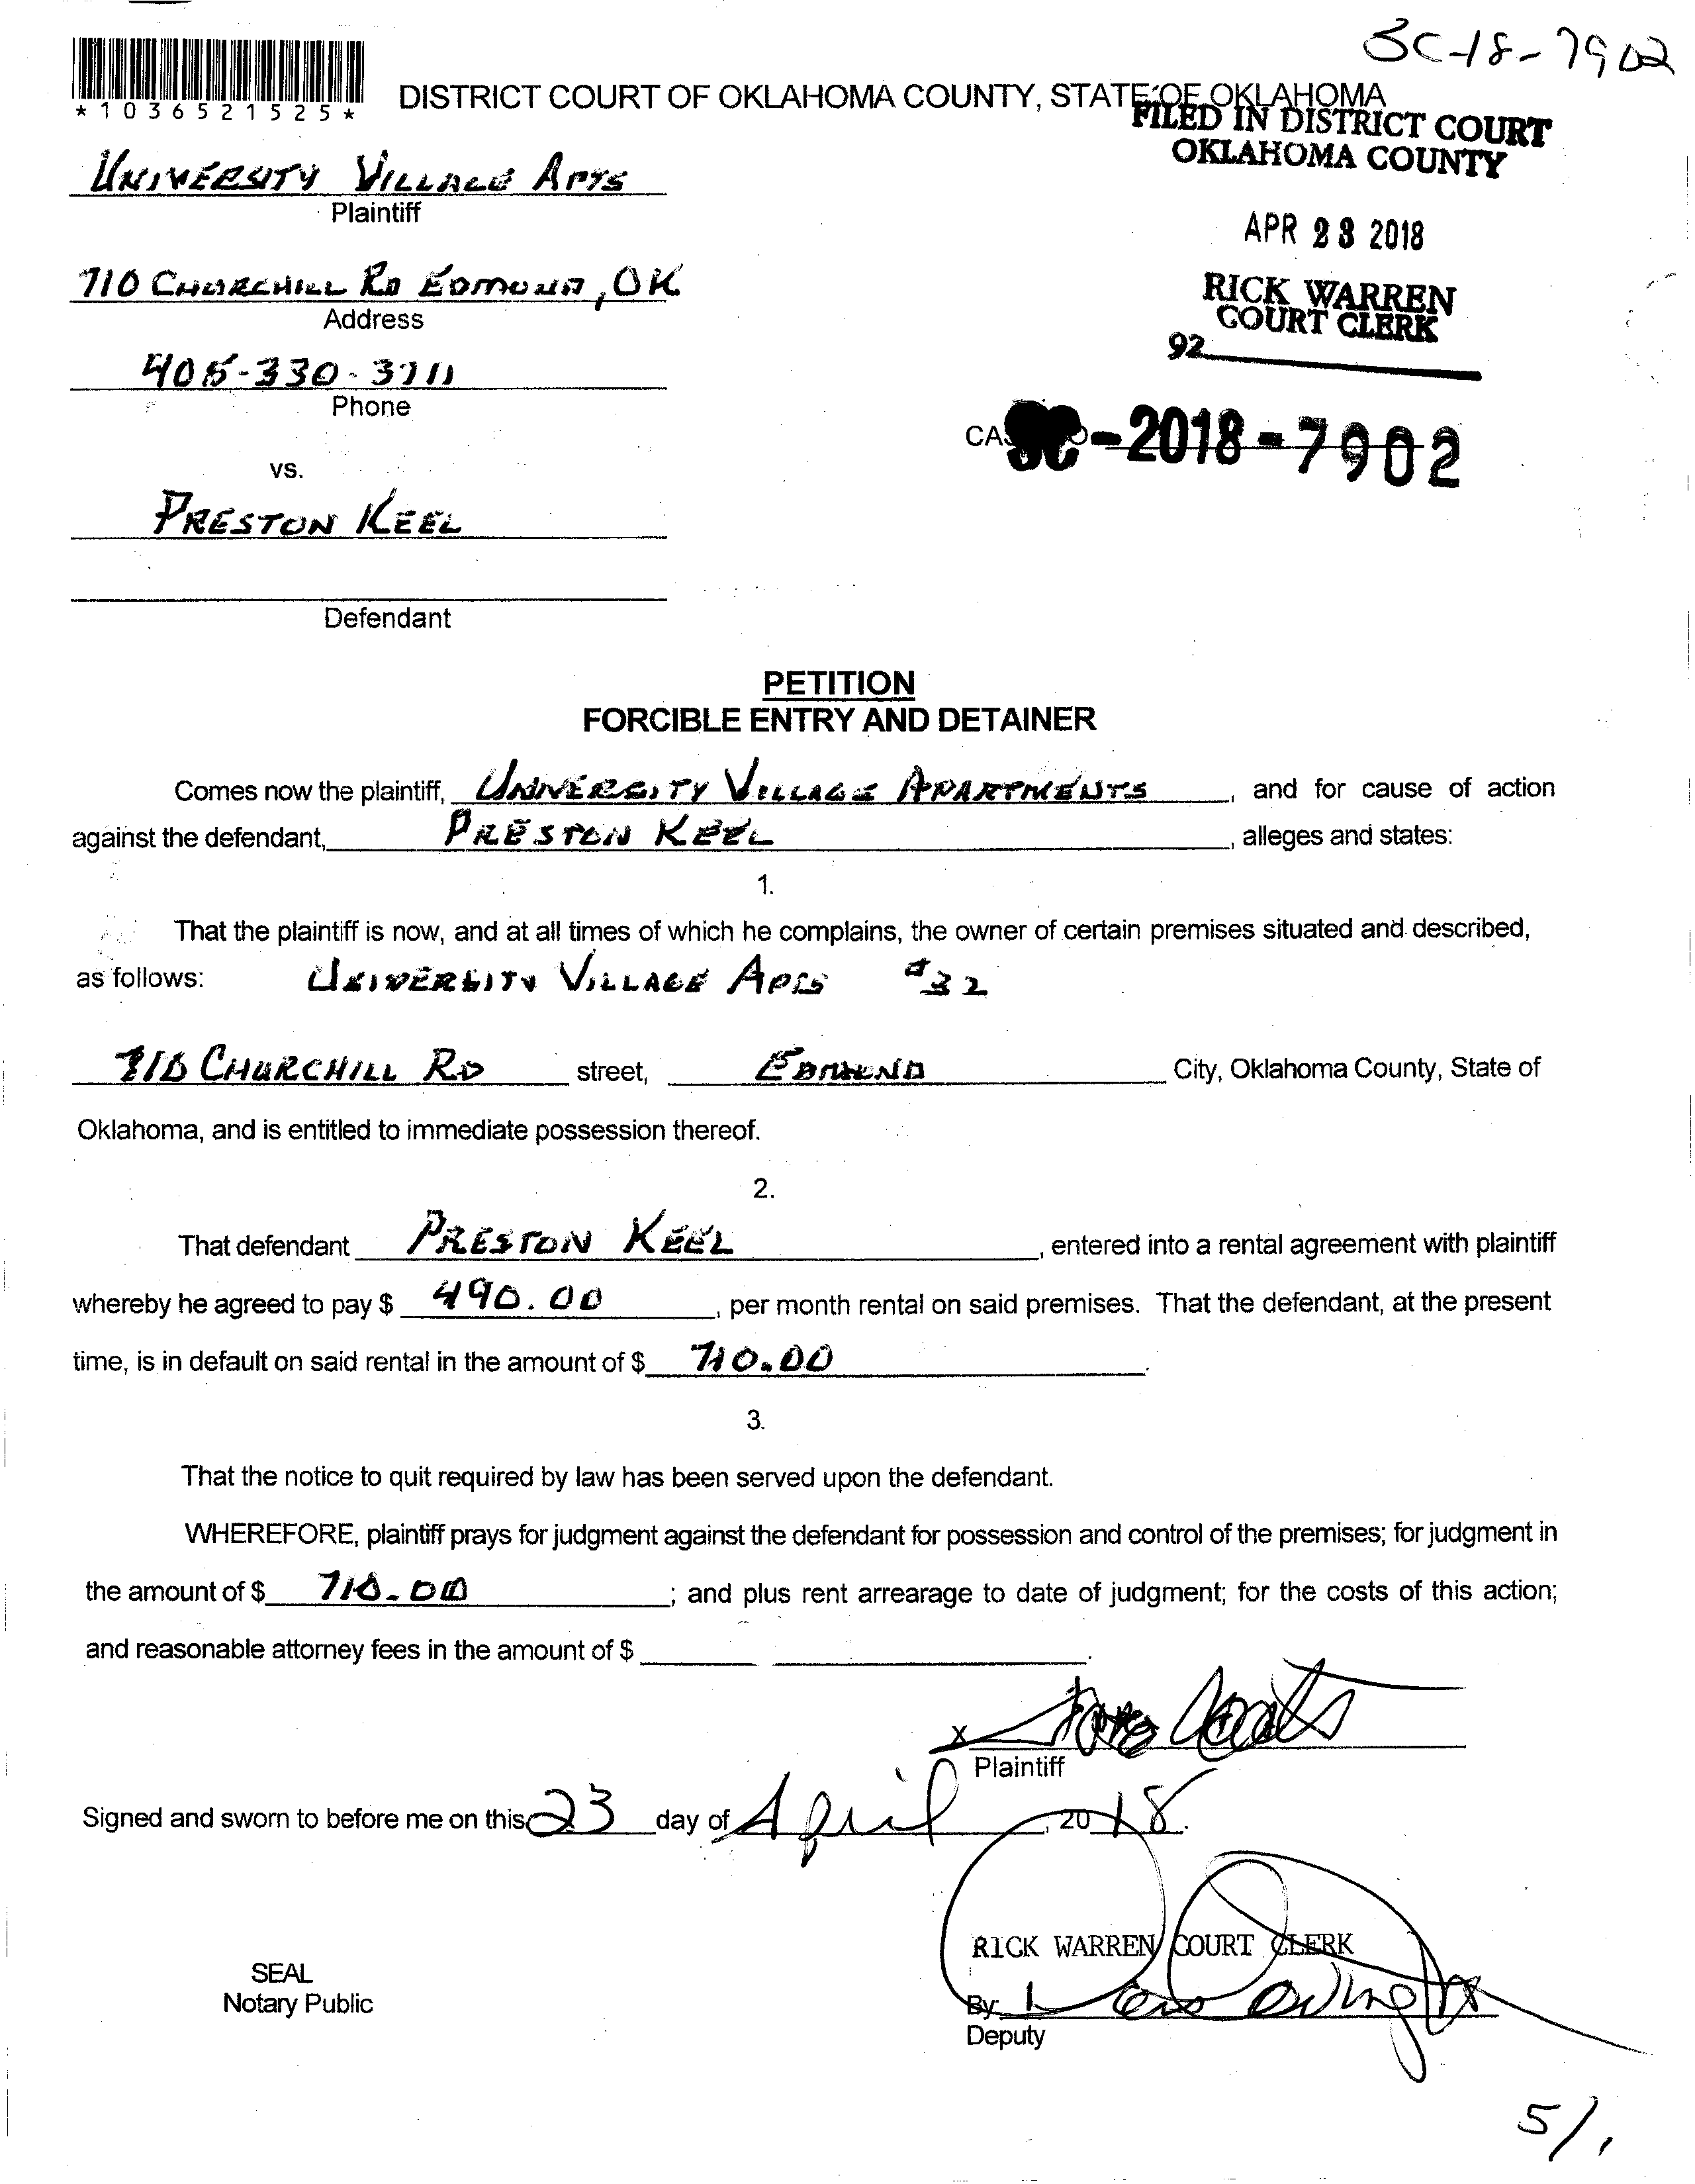 SC-18-7902
*1036521525*
DISTRICT COURT OF OKLAHOMA COUNTY, STATE OF OKLAHOMA
FILED IN DISTRICT COURT
OKLAHOMA COUNTY
UNIVERSITY VILLAGE APTS
Plaintiff
APR 23 2018
710 CHURCHILL RD EDMOND, OK
Address
RICK WARREN
COURT CLERK
92
405-330-3711
Phone
SC-2018-7902
vs.
PRESTON KEEL
Defendant
PETITION
FORCIBLE ENTRY AND DETAINER
Comes now the plaintiff, UNIVERSITY VILLAGE APARTMENTS, and for cause of action
against the defendant, PRESTON KEEL, alleges and states:
1.
That the plaintiff is now, and at all times of which he complains, the owner of certain premises situated and described,
as follows: UNIVERSITY VILLAGE APTS #32
710 CHURCHILL RD street, EDMOND City, Oklahoma County, State of
Oklahoma, and is entitled to immediate possession thereof.
2.
That defendant PRESTON KEEL, entered into a rental agreement with plaintiff
whereby he agreed to pay $ 490.00, per month rental on said premises. That the defendant, at the present
time, is in default on said rental in the amount of $ 710.00.
3.
That the notice to quit required by law has been served upon the defendant.
WHEREFORE, plaintiff prays for judgment against the defendant for possession and control of the premises; for judgment in
the amount of $ 710.00; and plus rent arrearage to date of judgment; for the costs of this action;
and reasonable attorney fees in the amount of $ .
X
Plaintiff
Signed and sworn to before me on this 23 day of April, 2018.
RICK WARREN COURT CLERK
SEAL
Notary Public
By:
Deputy
5/1